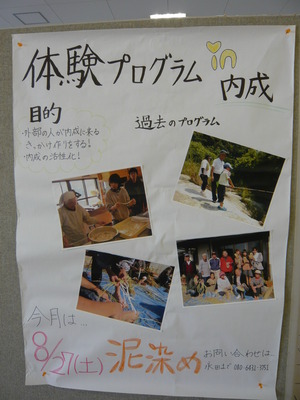 体験プログラム in 内成
目的
外部の人が内成に来る
きっかけ作りをする!
内成の活性化!
過去のプログラム
今月は…
8/27(土) 泥染め
お問い合わせは…